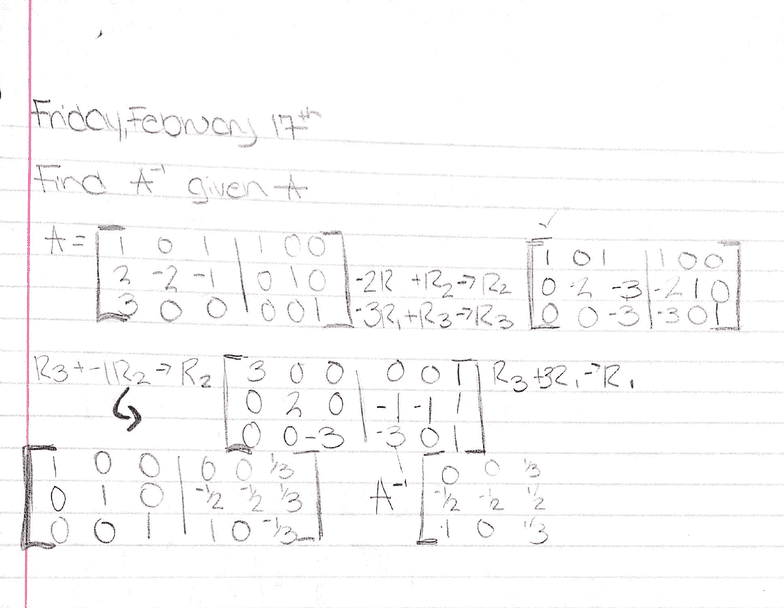 Friday, February 17th
Find A⁻¹ given A
A = [1 0 1 | 1 0 0
2 -2 -1 | 0 1 0
3 0 0 | 0 0 1]
-2R + R2 → R2
-3R1 + R3 → R3
[1 0 1 | 1 0 0
0 -2 -3 | -2 1 0
0 0 -3 | -3 0 1]
R3 + -1R2 → R2
[3 0 0 | 0 0 1
0 2 0 | -1 -1 1
0 0 -3 | -3 0 1]
R3 + 3R1 → R1
[1 0 0 | 0 0 1/3
0 1 0 | -1/2 -1/2 1/3
0 0 1 | 1 0 -1/3]
A⁻¹ [0 0 1/3
-1/2 -1/2 1/2
1 0 1/3